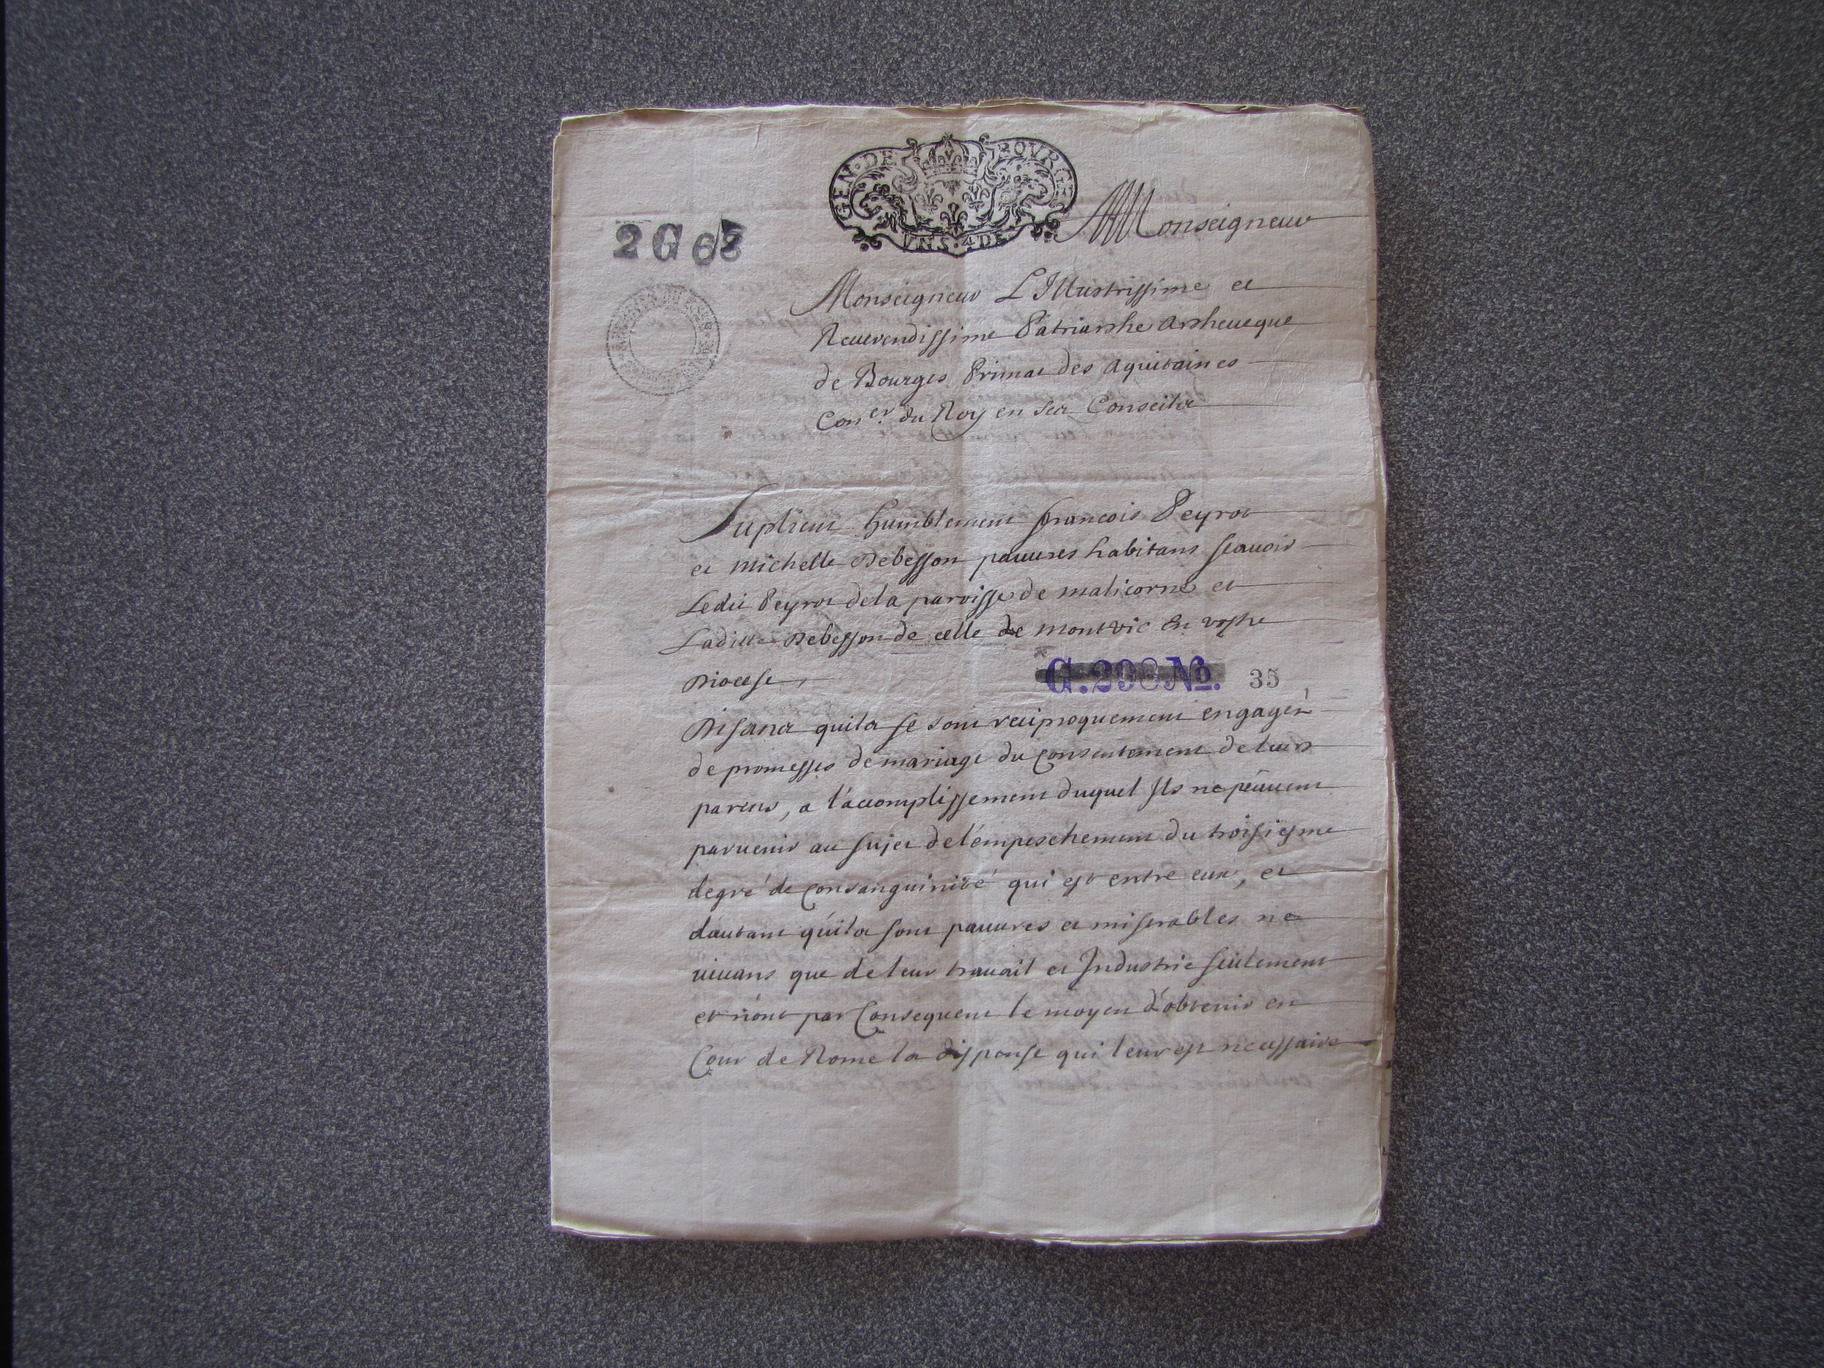 GEN·DE BOVRGE
VNS·4DE
2 G 68
AMonseigneur
Monseigneur L'Illustrissime et
Reuerendissime Patriarche Archeueque
de Bourges Primat des Aquitaines
Con.er du Roy en ses Conseils
Suplient humblement francois Peyrot
et Michelle Debesson pauures habitans scauoir
Ledit Peyrot dela paroisse de malicorne et
Laditte Debesson de celle de montvic En vostre
Diocese,
G. 298 No. 35
Disans quils se sont reciproquement engagés
de promesses de mariage du consentement de leurs
parens, a l'accomplissement duquel Ils ne peuuent
paruenir au sujet de l'empeschement du troisiesme
degré de consanguinité qui est entre eux, et
dautant quils sont pauures et miserables ne
viuans que de leur trauail et Industrie seulement
et n'ont par Consequent le moyen d'obtenir en
Cour de Rome la dispense qui leur est necessaire